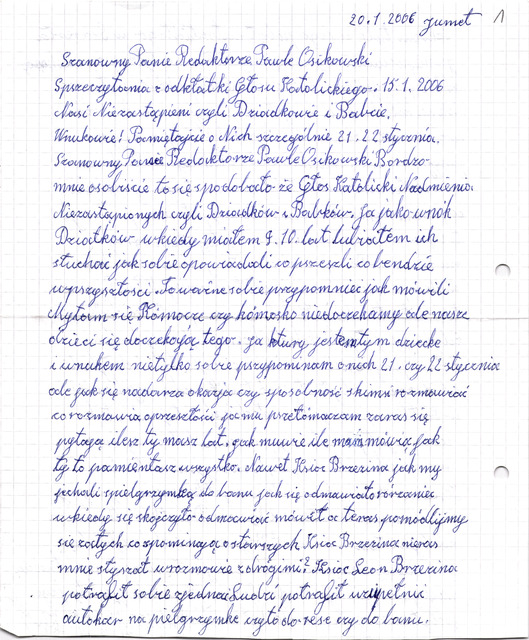 20.1.2006 Jumet 1
Szanowny Panie Redaktorze Pawle Osikowski
Sprzeczytania z odkłatki Głosu Katolickiego. 15.1.2006
Nasi Niezastąpieni czyli Dziadkowie i Babcie.
Wnukowie! Pamiętajcie o Nich szczególnie 21.22 stycznia.
Szanowny Panie Redaktorze Pawle Osikowski Bardzo
mnie osobiście to się spodobało że Głos Katolicki Nadmienia
Niezastąpionych czyli Dziadków i Babków. Ja jako wnók
Dziatków wkiedy miałem 9.10. lat lubiałem ich
słuchać jak sobie opowiadali co przeszli co bendzie
w przyszłości. To ważne sobie przypomniec jak mówili
My tam się Rómocze czy kómosko niedoczekamy ale nasze
dzieci się doczekają tego. Ja ktury jestem tym dziecke
i wnukem nietylko sobie przypominam o nich 21. czy 22 stycznia
ale jak się nadarza okazja czy sposobność skimś rozmawiać
co rozmawia oprzeszłości ja mu przetómaczam zaras się
pytają ilesz ty masz lat, jak muwie ile mam mówią jak
ty to pamientasz wszystko. Nawet Ksioc Brzezina jak my
jechali spielgrzymką do banu jak się odmawiało rórzaniec
wkiedy się skojczyło odmawiać mówił a teras pomódlijmy
się zatych co spominają o starszych Ksioc Brzezina nieras
mnie słyszał w rozmowie zdrogimi? Ksioc Leon Brzezina
potrafił sobie zjednać Ludzi potrafił wzupełnić
autokar na pielgrzymke czyto do rese czy do banu.